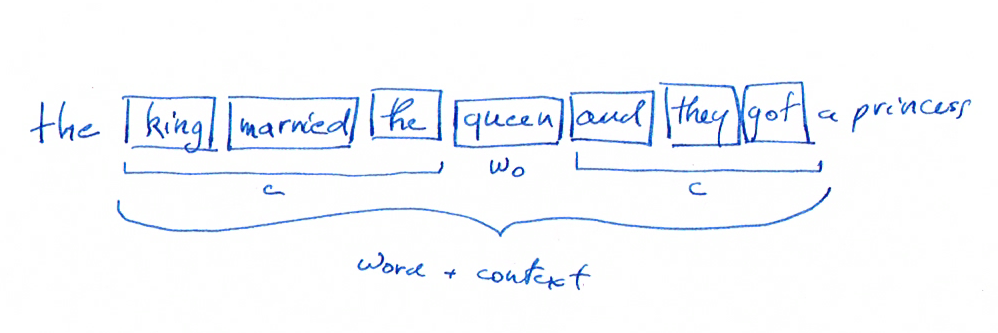 the king married the queen and they got a princess
c wo c
word + context